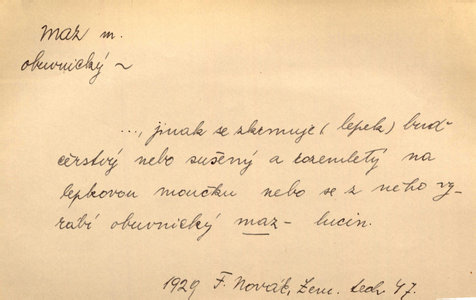 maz m.
obuvnický ~
..., jinak se zkrmuje (lepek) buď
čerstvý nebo sušený a rozemletý na
lepkovou moučku nebo se z něho vy-
rábí obuvnický maz - lucin.
1929 F. Novák, Zem. tech 47.